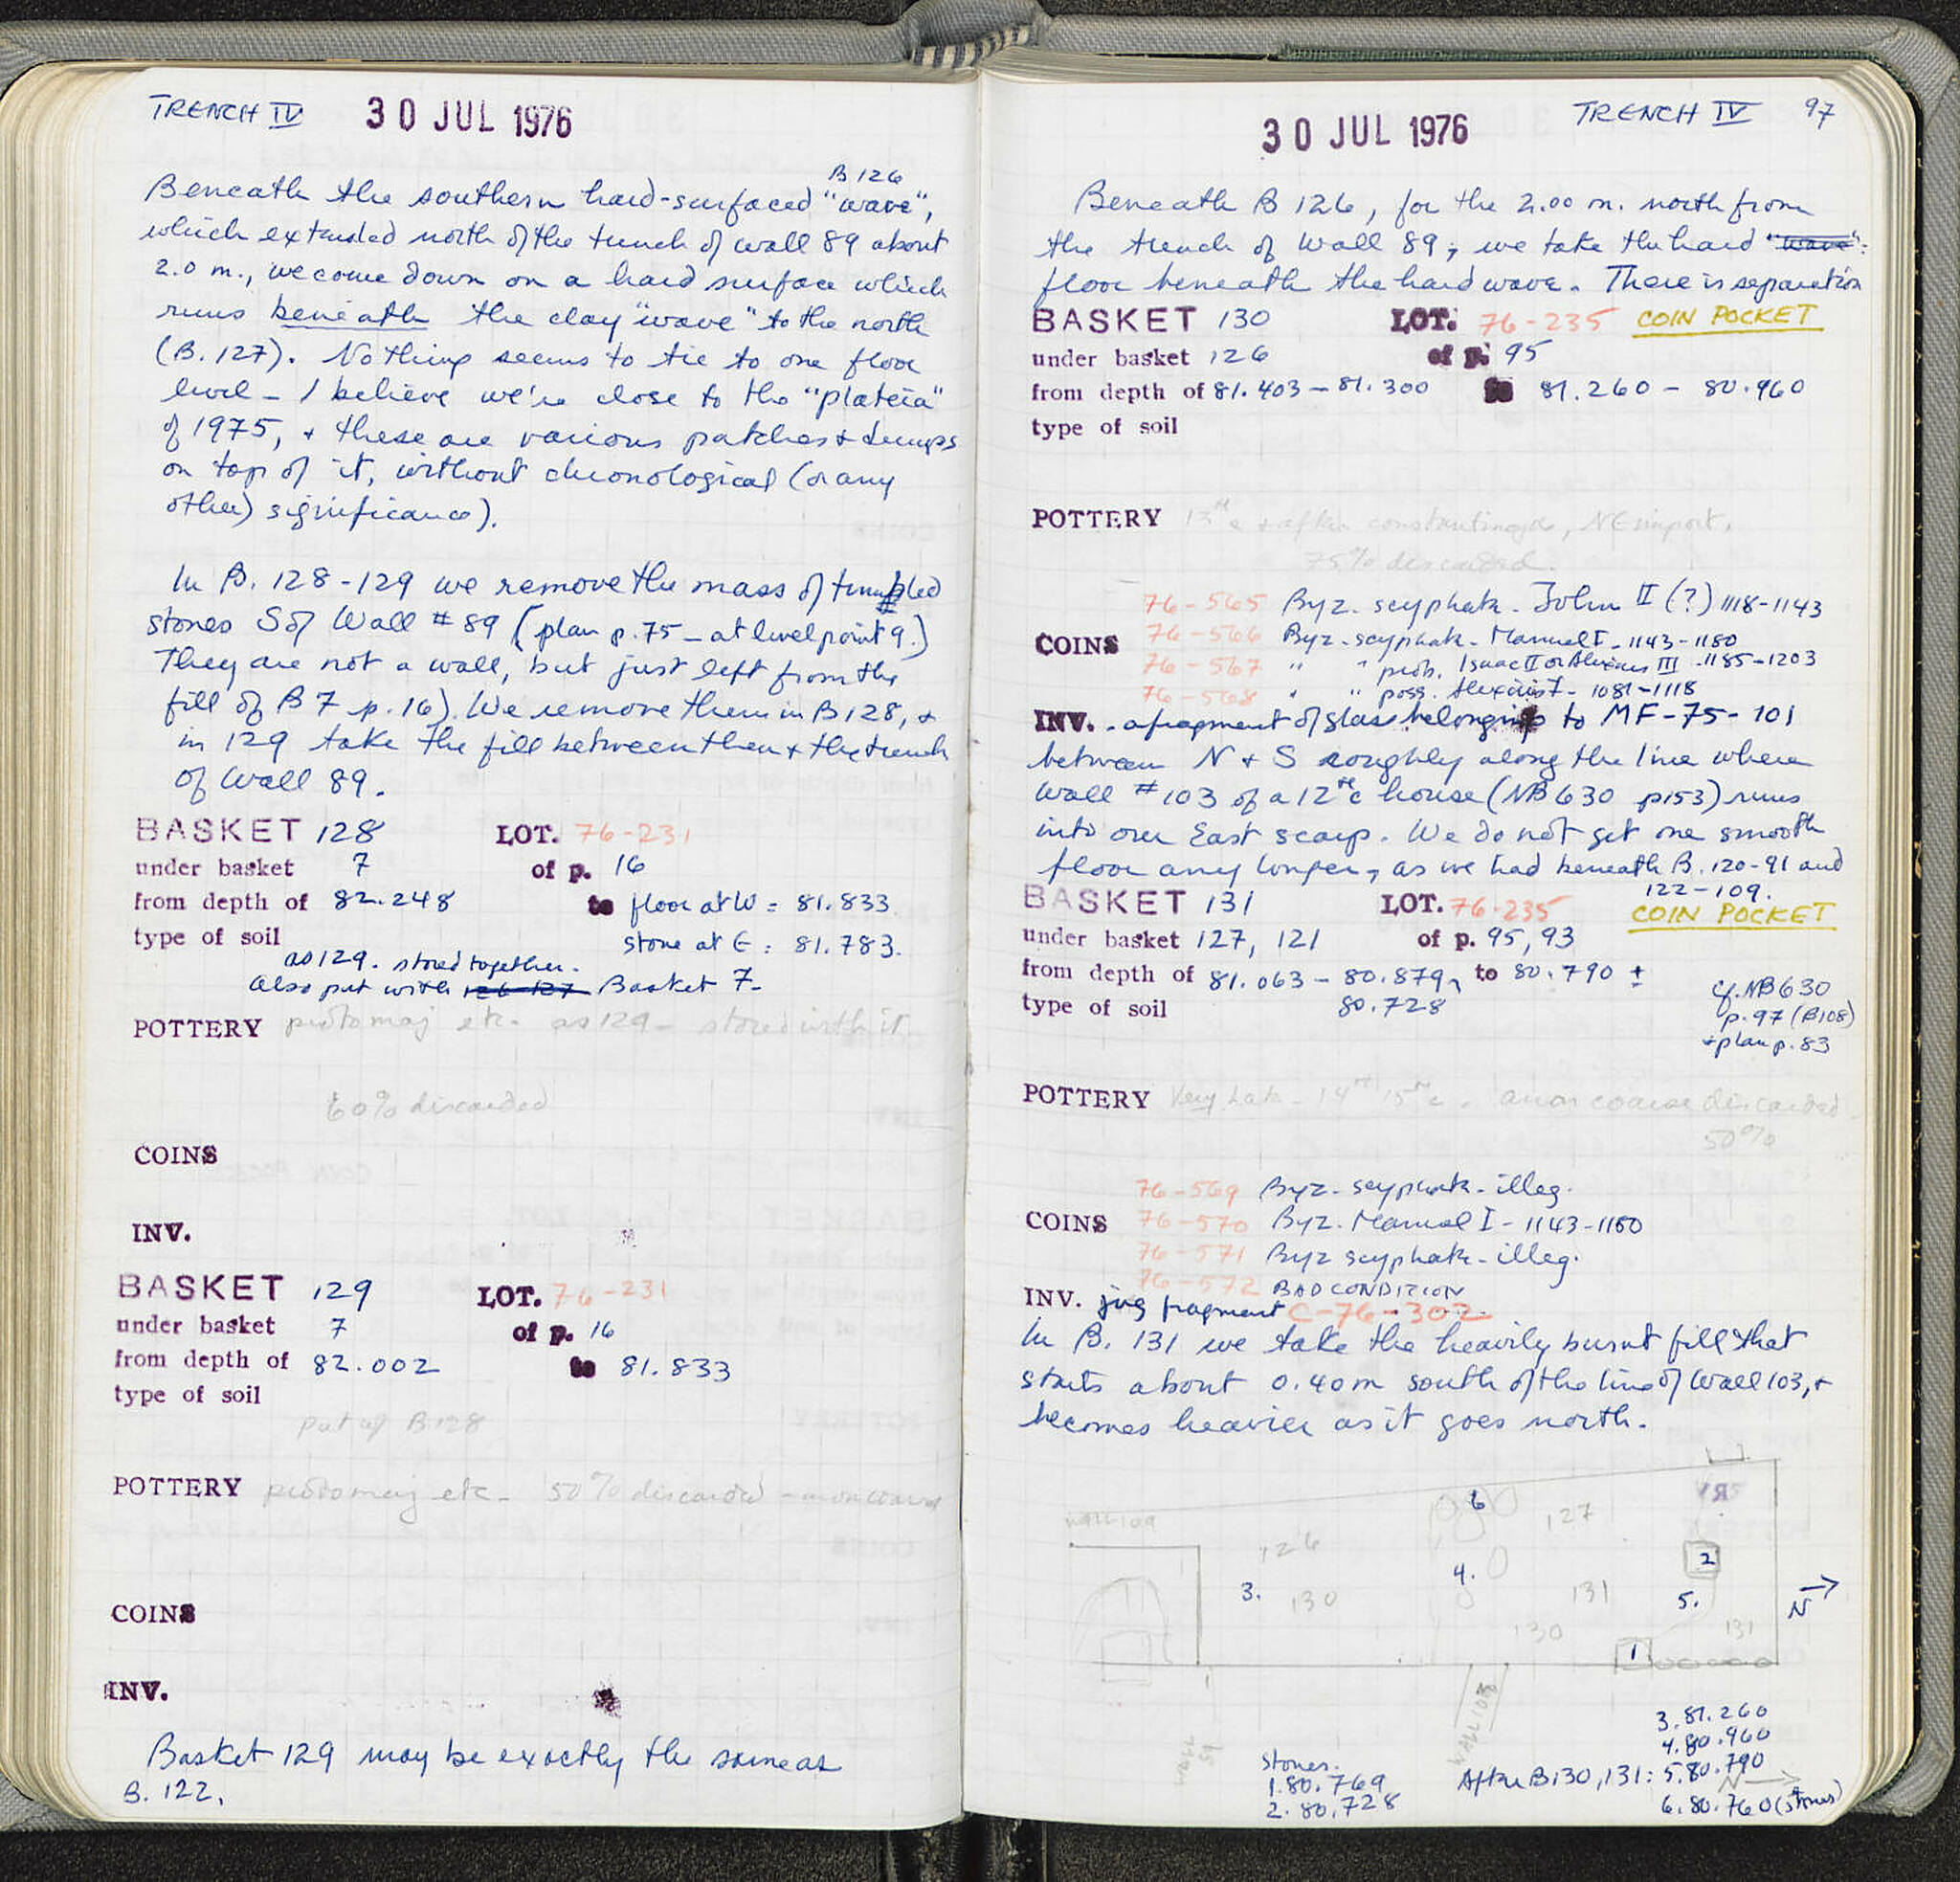 TRENCH IV 30 JUL 1976
B 126
Beneath the southern hard-surfaced "wave",
which extended north of the trench of wall 89 about
2.0 m., we come down on a hard surface which
runs beneath the clay "wave" to the north
(B. 127). Nothing seems to tie to one floor
level - I believe we're close to the "plateia"
of 1975, + these are various patches + dumps
on top of it, without chronological (or any
other) significance).
In B. 128-129 we remove the mass of tumbled
stones S of Wall #89 (plan p. 75 - at level point 9.)
They are not a wall, but just left from the
fill of B 7 p. 16). We remove them in B 128, +
in 129 take the fill between them + the trench
of Wall 89.
BASKET 128 LOT. 76-231
under basket 7 of p. 16
from depth of 82.248 to floor at W = 81.833
type of soil stone at E : 81.783.
as 129. stored together.
Also put with 126-127 Basket 7-
POTTERY protomaj etc. as 129 - stored with it.
60% discarded
COINS
INV.
BASKET 129 LOT. 76-231
under basket 7 of p. 16
from depth of 82.002 to 81.833
type of soil
put w/ B 128
POTTERY protomaj etc - 50% discarded -
COINS
INV.
Basket 129 may be exactly the same as
B. 122.
30 JUL 1976 TRENCH IV 97
Beneath B 126, for the 2.00 m. north from
the trench of Wall 89, we take the hard "wave":
floor beneath the hard wave. There is separation
BASKET 130 LOT. 76-235 COIN POCKET
under basket 126 of p. 95
from depth of 81.403 - 81.300 to 81.260 - 80.960
type of soil
POTTERY 13th c + after constantinople, NE import.
75% discarded.
76-565 Byz. scyphate - John II (?) 1118-1143
COINS 76-566 Byz. scyphate - Manuel I - 1143-1180
76-567 " " prob. Isaac II or Alexius III - 1185-1203
76-568 " " poss. Alexius I - 1081-1118
INV. - a fragment of glass belonging to MF-75-101
between N + S roughly along the line where
Wall #103 of a 12th c house (NB 630 p153) runs
into our East scarp. We do not get one smooth
floor any longer, as we had beneath B. 120-91 and
122-109.
BASKET 131 LOT. 76-235 COIN POCKET
under basket 127, 121 of p. 95, 93
from depth of 81.063 - 80.879, to 80.790 ±
type of soil 80.728
cf. NB 630
p. 97 (B108)
+ plan p. 83
POTTERY Very late - 14th 15th c. coarse discarded
50%
76-569 Byz - scyphate - illeg.
COINS 76-570 Byz. Manuel I - 1143-1180
76-571 Byz scyphate - illeg.
76-572 BAD CONDITION
INV. jug fragment C-76-302
In B. 131 we take the heavily burnt fill that
starts about 0.40 m south of the line of Wall 103, +
becomes heavier as it goes north.
6 127
126
2
4.
3. 130 131 5. N
130 131
1
WALL 89
WALL 103
3. 81.260
4. 80.960
stones.
1. 80.769 After B130, 131: 5. 80.790
2. 80.728 6. 80.760 (stones)